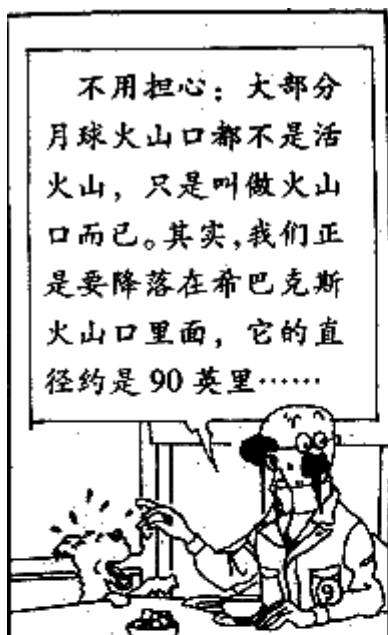 不用担心：大部分
月球火山口都不是活
火山，只是叫做火山
口而已。其实，我们正
是要降落在希巴克斯
火山口里面，它的直
径约是 90 英里……
9